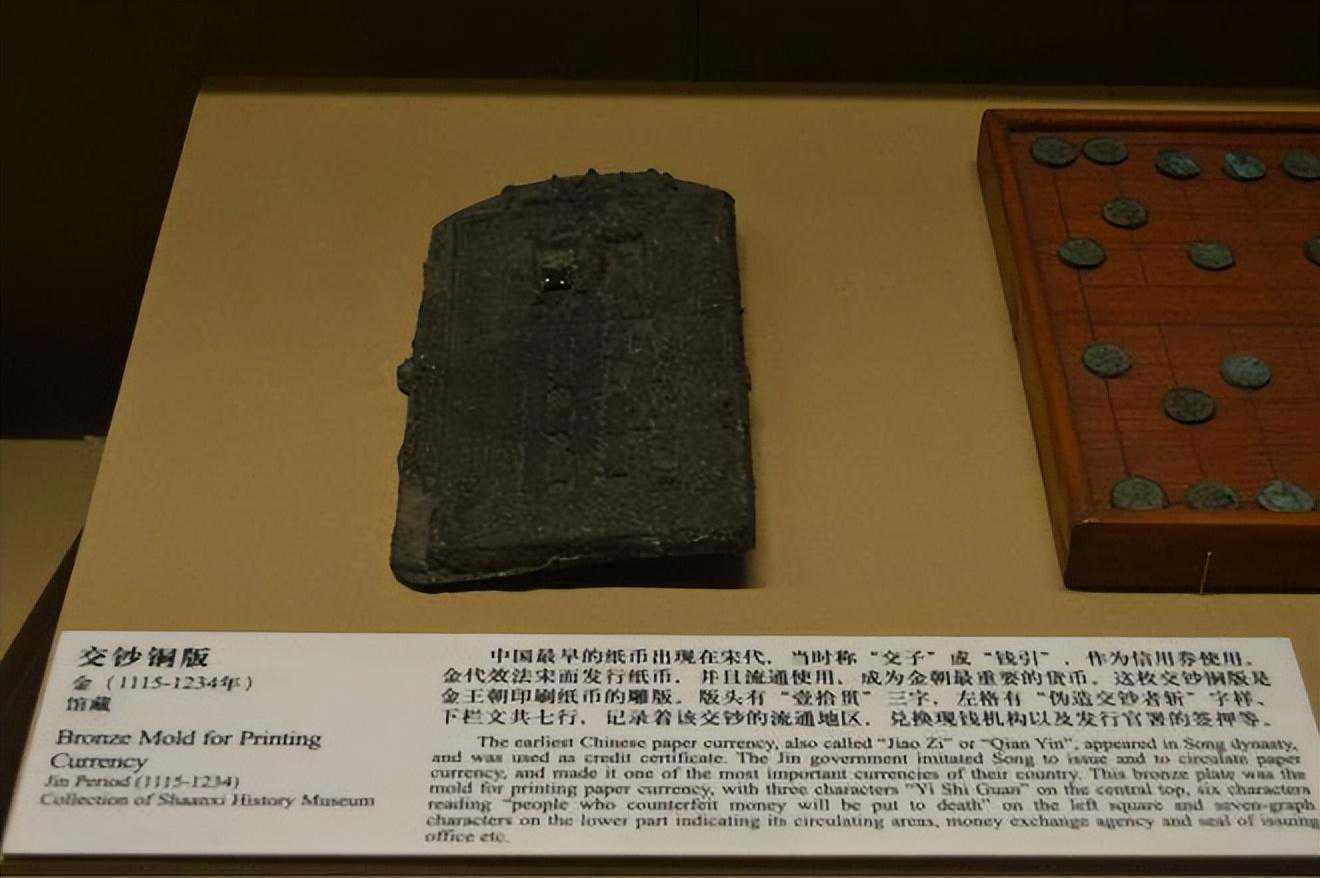 交钞铜版
金（1115-1234年）
馆藏
Bronze Mold for Printing
Currency
Jin Period (1115-1234)
Collection of Shaanxi History Museum
中国最早的纸币出现在宋代，当时称“交子”或“钱引”，作为信用券使用。
金代效法宋而发行纸币，并且流通使用，成为金朝最重要的货币。这枚交钞铜版是
金王朝印刷纸币的雕版。版头有“壹拾贯”三字，左格有“伪造交钞者斩”字样、
下栏文共七行，记录着该交钞的流通地区，兑换现钱机构以及发行官署的签押等。
The earliest Chinese paper currency, also called “Jiao Zi” or “Qian Yin”, appeared in Song dynasty,
and was used as credit certificate. The Jin government imitated Song to issue and to circulate paper
currency, and made it one of the most important currencies of their country. This bronze plate was the
mold for printing paper currency, with three characters “Yi Shi Guan” on the central top, six characters
reading “people who counterfeit money will be put to death” on the left square and seven-graph
characters on the lower part indicating its circulating areas, money exchange agency and seal of issuing
office etc.